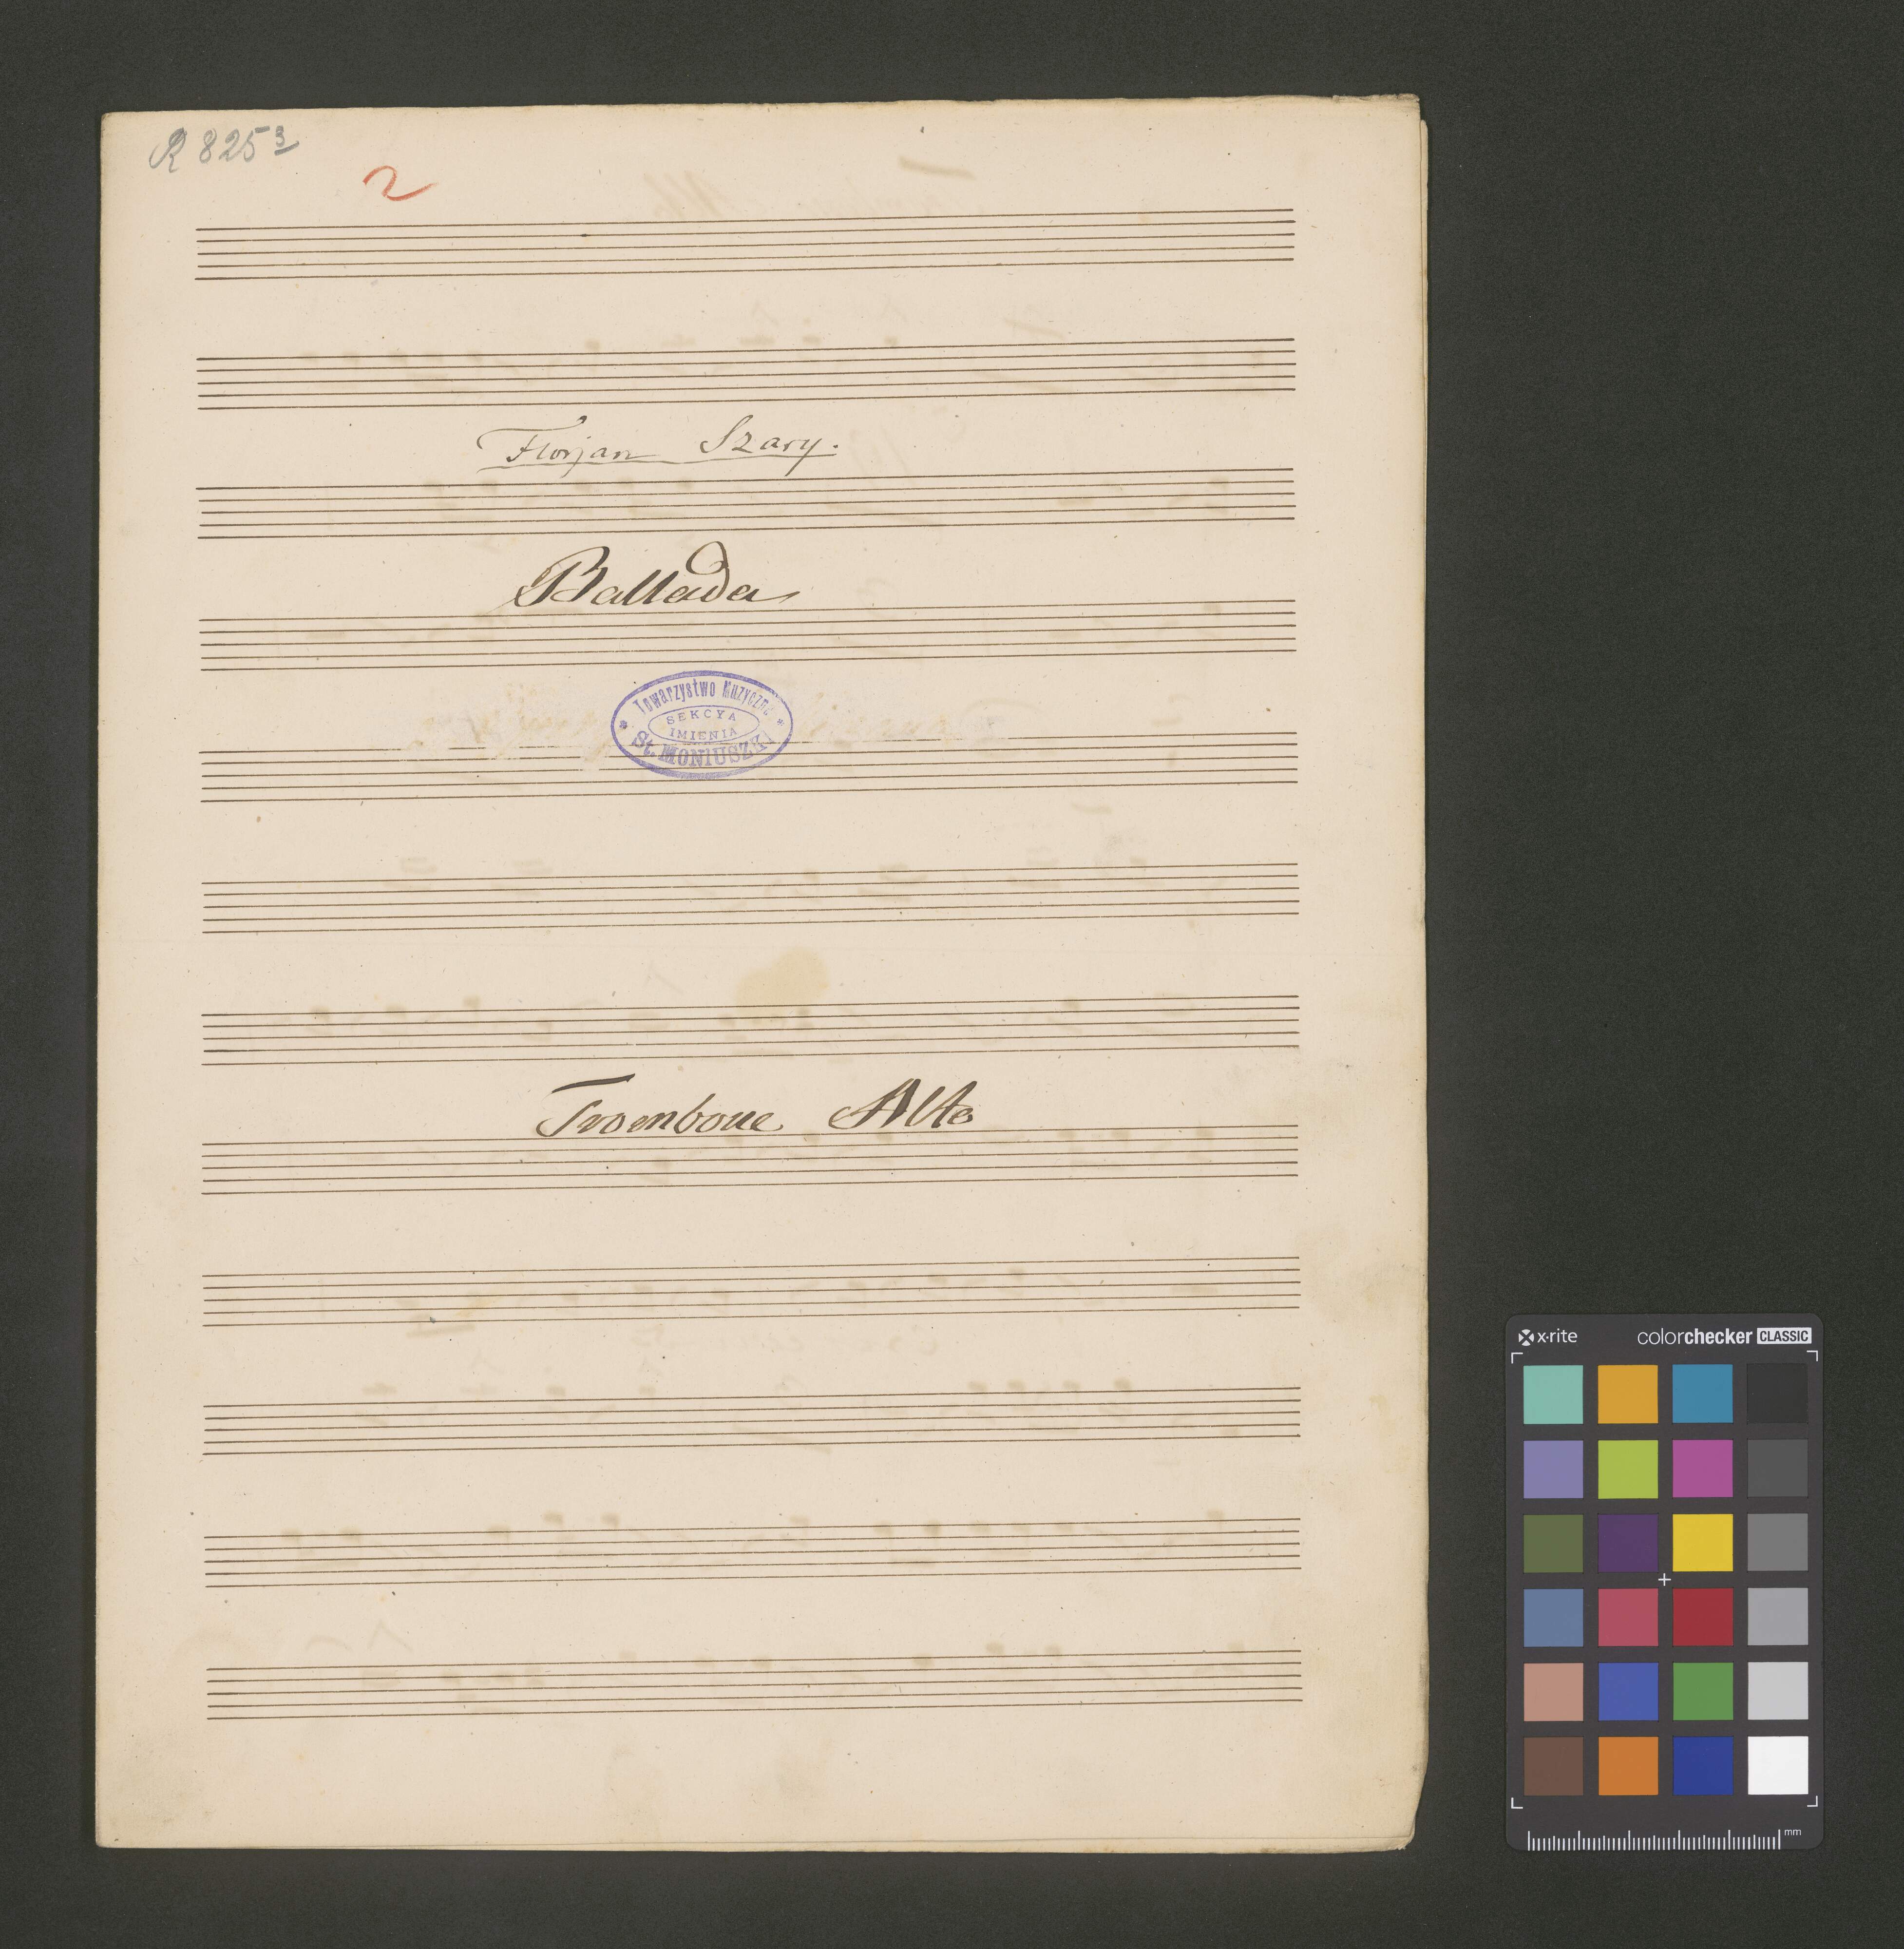 R 825³
2
Florjan Szary.
Ballada
* Towarzystwo Muzyczne *
SEKCYA
IMIENIA
St. MONIUSZKI
Trombone Alto
x·rite colorchecker CLASSIC
mm